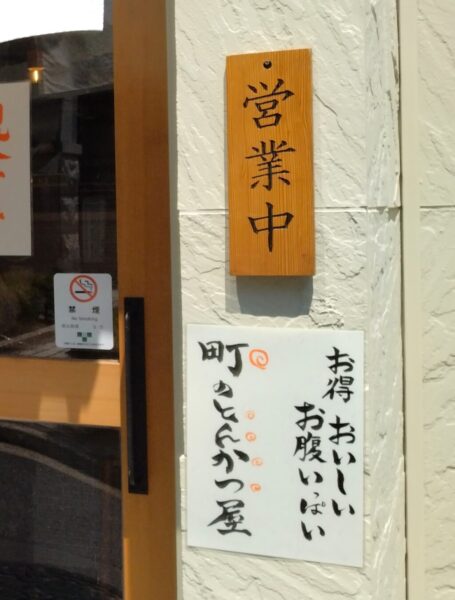 営業中
お得 おいしい
お腹いっぱい
町のとんかつ屋
禁煙
No Smoking